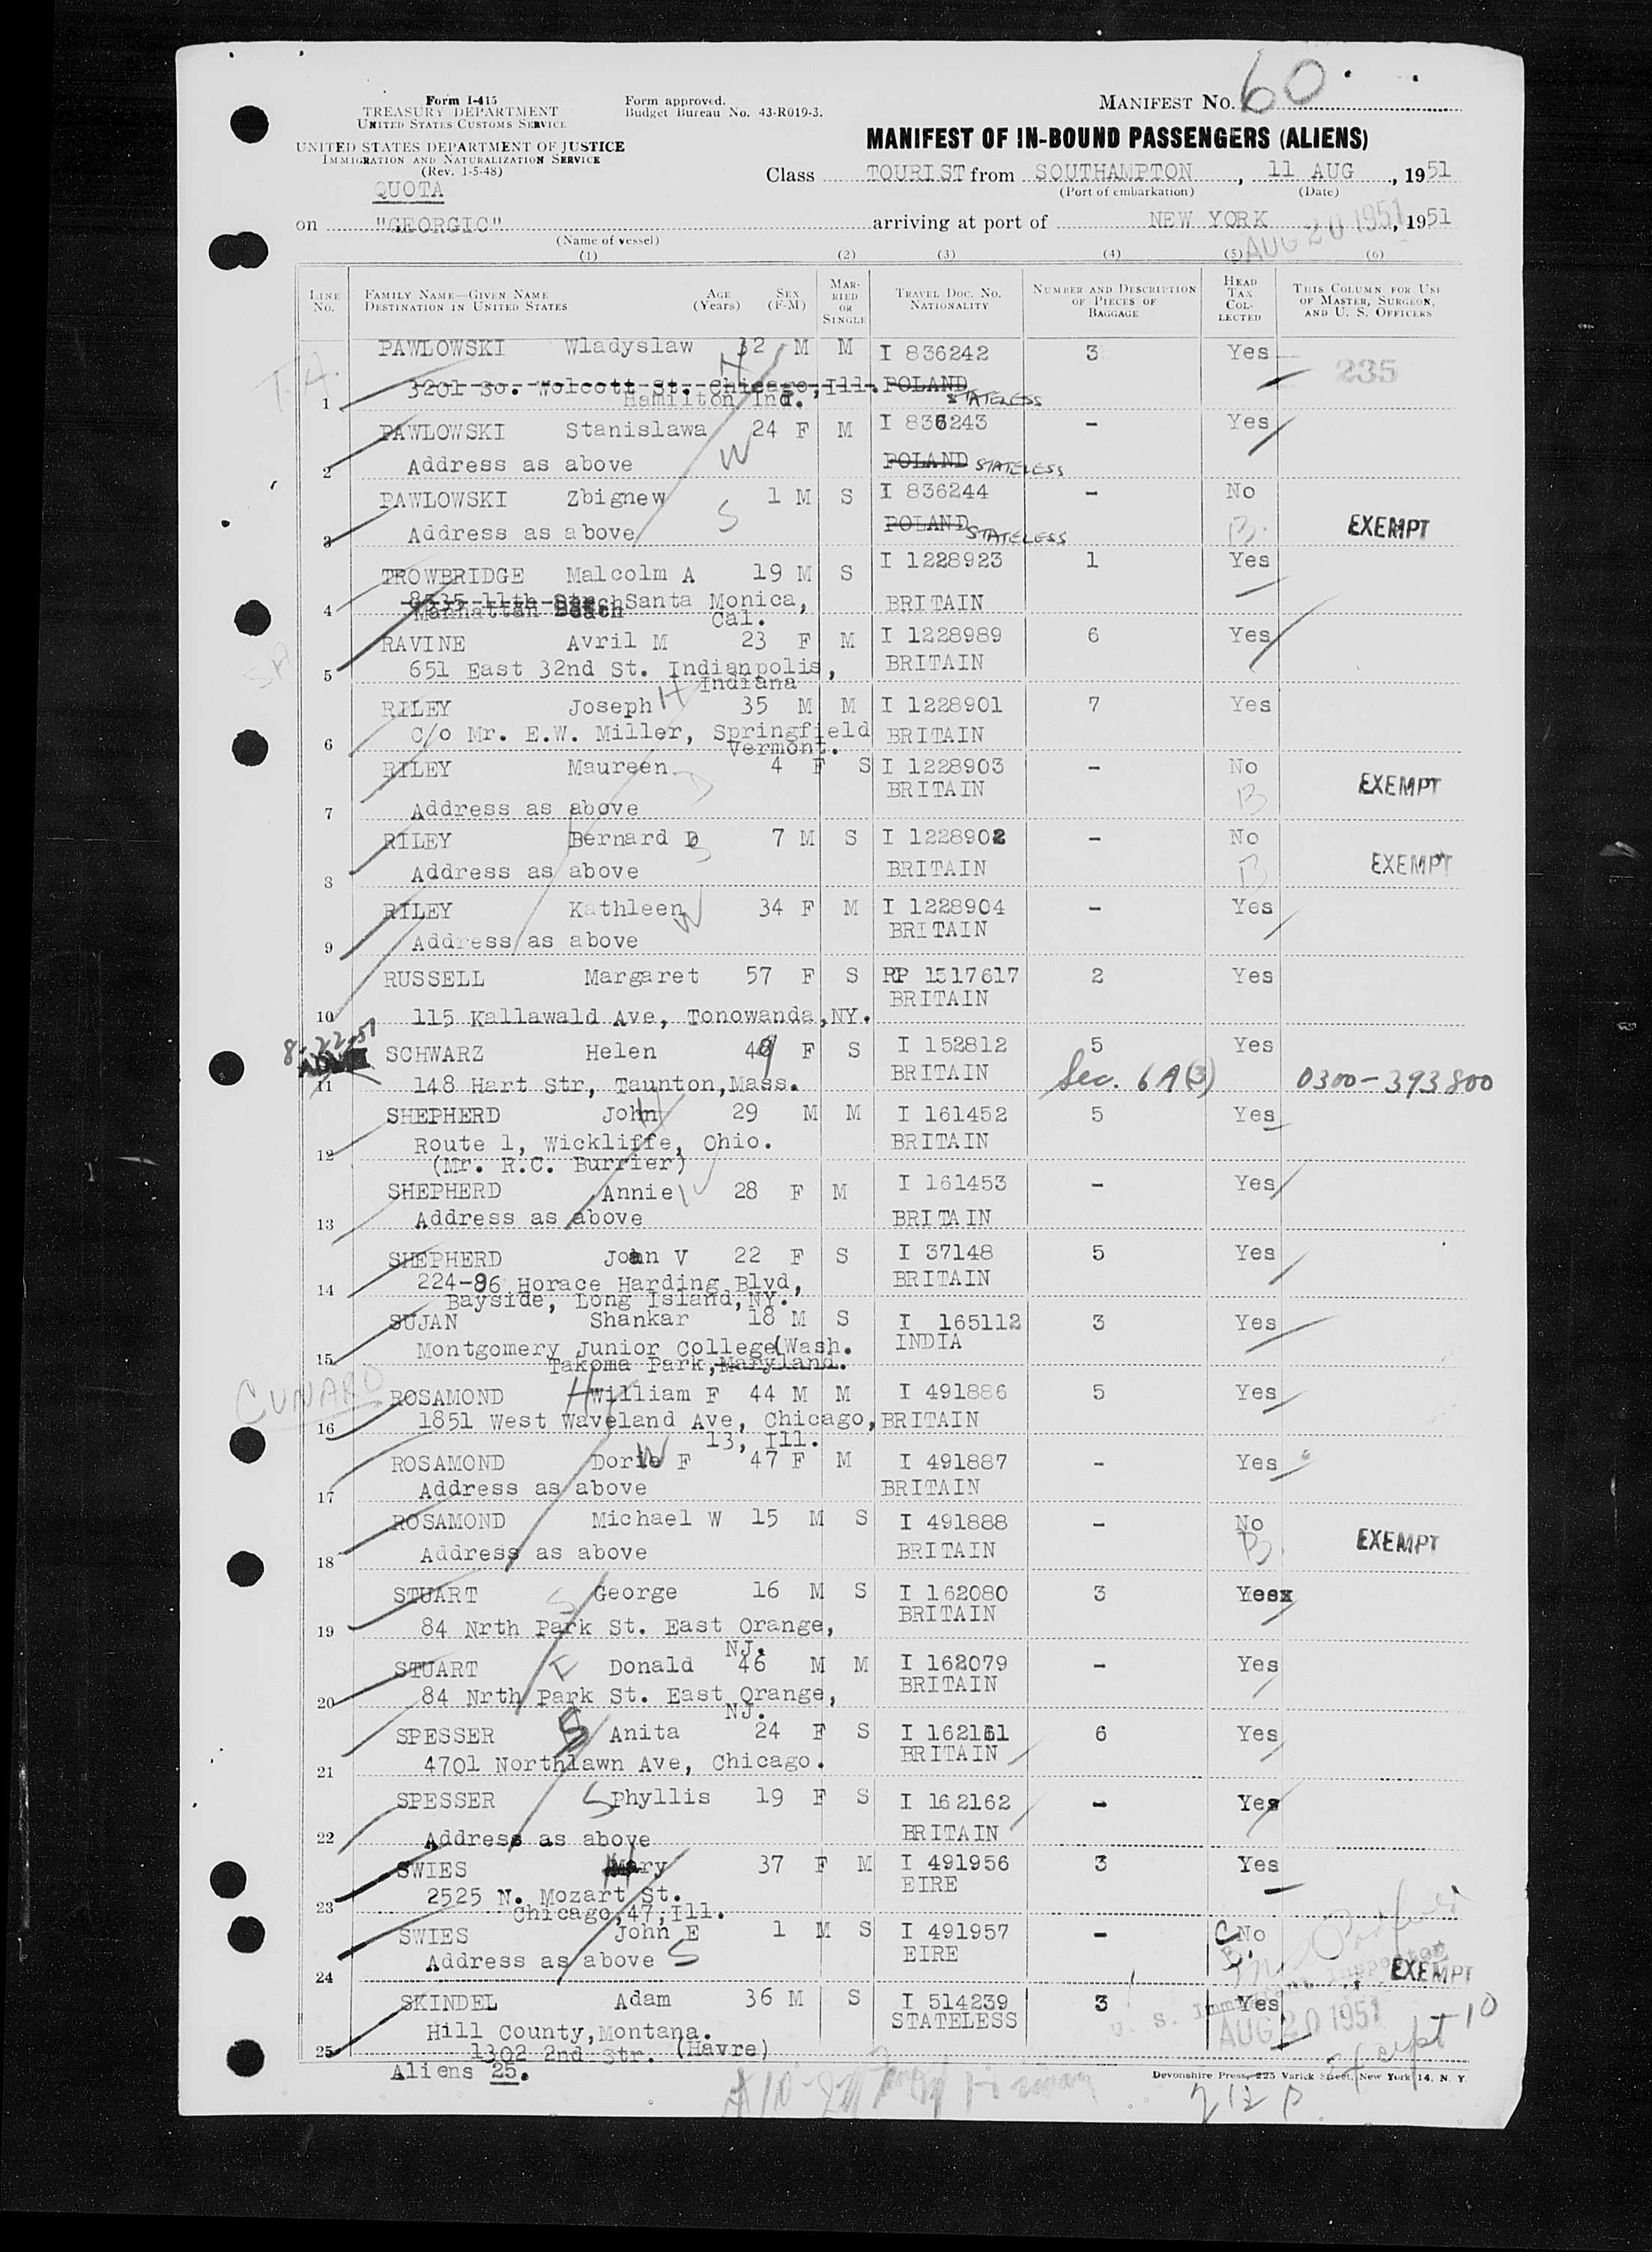 60
Form I-415
TREASURY DEPARTMENT
UNITED STATES CUSTOMS SERVICE
Form approved.
Budget Bureau No. 43-R019-3.
MANIFEST NO.
UNITED STATES DEPARTMENT OF JUSTICE
IMMIGRATION AND NATURALIZATION SERVICE
(Rev. 1-5-48)
MANIFEST OF IN-BOUND PASSENGERS (ALIENS)
QUOTA
Class TOURIST from SOUTHAMPTON, 11 AUG, 1951
(Port of embarkation) (Date)
on "GEORGIC" arriving at port of NEW YORK, 1951
AUG 20 1951
(Name of vessel)
(1) (2) (3) (4) (5) (6)
LINE NO. FAMILY NAME—GIVEN NAME DESTINATION IN UNITED STATES AGE (Years) SEX (F-M) MARRIED OR SINGLE TRAVEL DOC. NO. NATIONALITY NUMBER AND DESCRIPTION OF PIECES OF BAGGAGE HEAD TAX COLLECTED THIS COLUMN FOR USE OF MASTER, SURGEON, AND U. S. OFFICERS
T.A.
PAWLOWSKI Wladyslaw 32 M M I 836242 3 Yes 235
H
3201 So. Wolcott St. Chicago, Ill. POLAND
1 Hamilton Ind. STATELESS
PAWLOWSKI Stanislawa 24 F M I 836243 - Yes
W
2 Address as above POLAND STATELESS
PAWLOWSKI Zbignew 1 M S I 836244 - No
S
3 Address as above POLAND STATELESS B. EXEMPT
TROWBRIDGE Malcolm A 19 M S I 1228923 1 Yes
8535 11th Str. Santa Monica, BRITAIN
4 Manhattan Beach Cal.
RAVINE Avril M 23 F M I 1228989 6 Yes
SA
5 651 East 32nd St. Indianpolis, BRITAIN
Indiana
RILEY Joseph H 35 M M I 1228901 7 Yes
6 C/o Mr. E.W. Miller, Springfield BRITAIN
Vermont.
RILEY Maureen 4 F S I 1228903 - No
D BRITAIN B EXEMPT
7 Address as above
RILEY Bernard D 7 M S I 1228902 - No
S
8 Address as above BRITAIN B EXEMPT
RILEY Kathleen 34 F M I 1228904 - Yes
W
9 Address as above BRITAIN
RUSSELL Margaret 57 F S RP 1517617 2 Yes
BRITAIN
10 115 Kallawald Ave, Tonowanda, NY.
8-22-51
SCHWARZ Helen 49 F S I 152812 5 Yes
11 148 Hart Str, Taunton, Mass. BRITAIN Sec. 6A(3) 0300-393800
SHEPHERD John 29 M M I 161452 5 Yes
H
12 Route 1, Wickliffe, Ohio. BRITAIN
(Mr. R.C. Burrier)
SHEPHERD Annie W 28 F M I 161453 - Yes
13 Address as above BRITAIN
SHEPHERD Joan V 22 F S I 37148 5 Yes
14 224-86 Horace Harding Blvd, BRITAIN
Bayside, Long Island, NY.
SUJAN Shankar 18 M S I 165112 3 Yes
15 Montgomery Junior College (Wash. INDIA
Takoma Park, Maryland.
CUNARD
ROSAMOND H William F 44 M M I 491886 5 Yes
16 1851 West Waveland Ave, Chicago, BRITAIN
13, Ill.
ROSAMOND Doris F 47 F M I 491887 - Yes
W
17 Address as above BRITAIN
ROSAMOND Michael W 15 M S I 491888 - No
18 Address as above BRITAIN B. EXEMPT
STUART S George 16 M S I 162080 3 Yesx
19 84 Nrth Park St. East Orange, BRITAIN
NJ.
STUART F Donald 46 M M I 162079 - Yes
20 84 Nrth Park St. East Orange, BRITAIN
NJ.
SPESSER S Anita 24 F S I 162161 6 Yes
21 4701 Northlawn Ave, Chicago. BRITAIN
SPESSER S Phyllis 19 F S I 162162 - Yes
22 Address as above BRITAIN
SWIES Mary 37 F M I 491956 3 Yes
23 2525 N. Mozart St. EIRE
Chicago, 47, Ill.
SWIES John E 1 M S I 491957 - No
24 Address as above S EIRE B. EXEMPT
U. S. Immigrant Inspector
SKINDEL Adam 36 M S I 514239 3 Yes
AUG 20 1951
Hill County, Montana. STATELESS
25 1302 2nd Str. (Havre)
Exempt 10
Aliens 25.
Devonshire Press, 225 Varick Street, New York 14, N. Y.